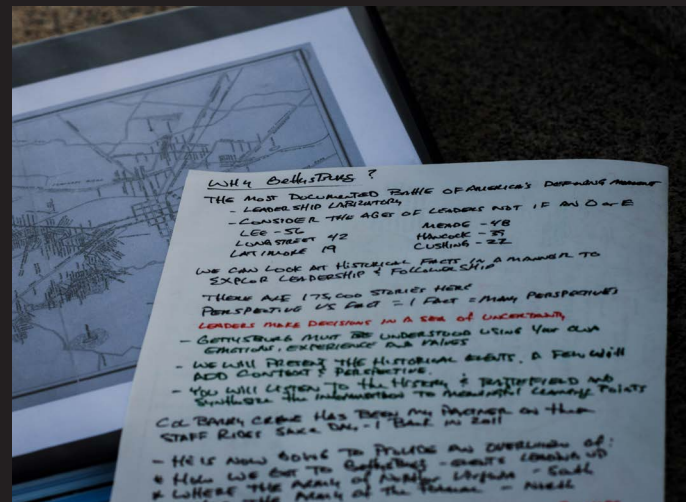 WHY GETTYSBURG ?
THE MOST DOCUMENTED BATTLE OF AMERICA'S DEFINING MOMENT
- LEADERSHIP LABORATORY
- CONSIDER THE AGES OF LEADERS NOT IF AN O or E
LEE - 56 MEADE - 48
LONGSTREET 42 HANCOCK - 39
LATIMORE 19 CUSHING - 22
WE CAN LOOK AT HISTORICAL FACTS IN A MANNER TO
EXPLOR LEADERSHIP & FOLLOWERSHIP
THERE ARE 175,000 STORIES HERE
PERSPECTIVE VS FACT = 1 FACT = MANY PERSPECTIVES
LEADERS MAKE DECISIONS IN A SEA OF UNCERTAINTY
- GETTYSBURG MUST BE UNDERSTOOD USING YOUR OWN
EMOTIONS, EXPERIENCE AND VALUES
- WE WILL PRESENT THE HISTORICAL EVENTS. A FEW WILL
ADD CONTEXT & PERSPECTIVE.
- YOU WILL LISTEN TO THE HISTORY & BATTLEFIELD AND
SYNTHESIZE THE INFORMATION TO MEANINGFUL LEARNING POINTS
COL BARRY CRANE HAS BEEN MY PARTNER ON THESE
STAFF RIDES SINCE DAY-1 BACK IN 2011
- HE IS NOW GOING TO PROVIDE AN OVERVIEW OF:
* HOW WE GOT TO GETTYSBURG - EVENTS LEADING UP
* WHERE THE ARMY OF NORTHERN VIRGINIA - SOUTH
THE ARMY OF THE POTOMAC - NORTH